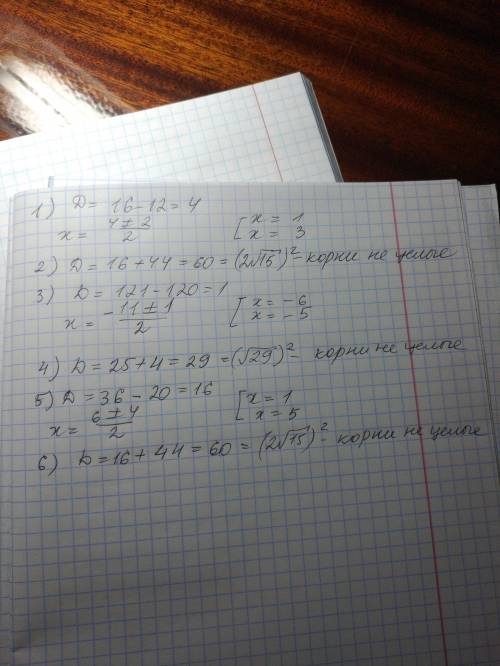 1) D = 16 - 12 = 4
x = (4 ± 2)/2 [ x = 1
x = 3
2) D = 16 + 44 = 60 = (2√15)² - корни не целые
3) D = 121 - 120 = 1
x = (-11 ± 1)/2 [ x = -6
x = -5
4) D = 25 + 4 = 29 = (√29)² - корни не целые
5) D = 36 - 20 = 16
x = (6 ± 4)/2 [ x = 1
x = 5
6) D = 16 + 44 = 60 = (2√15)² - корни не целые